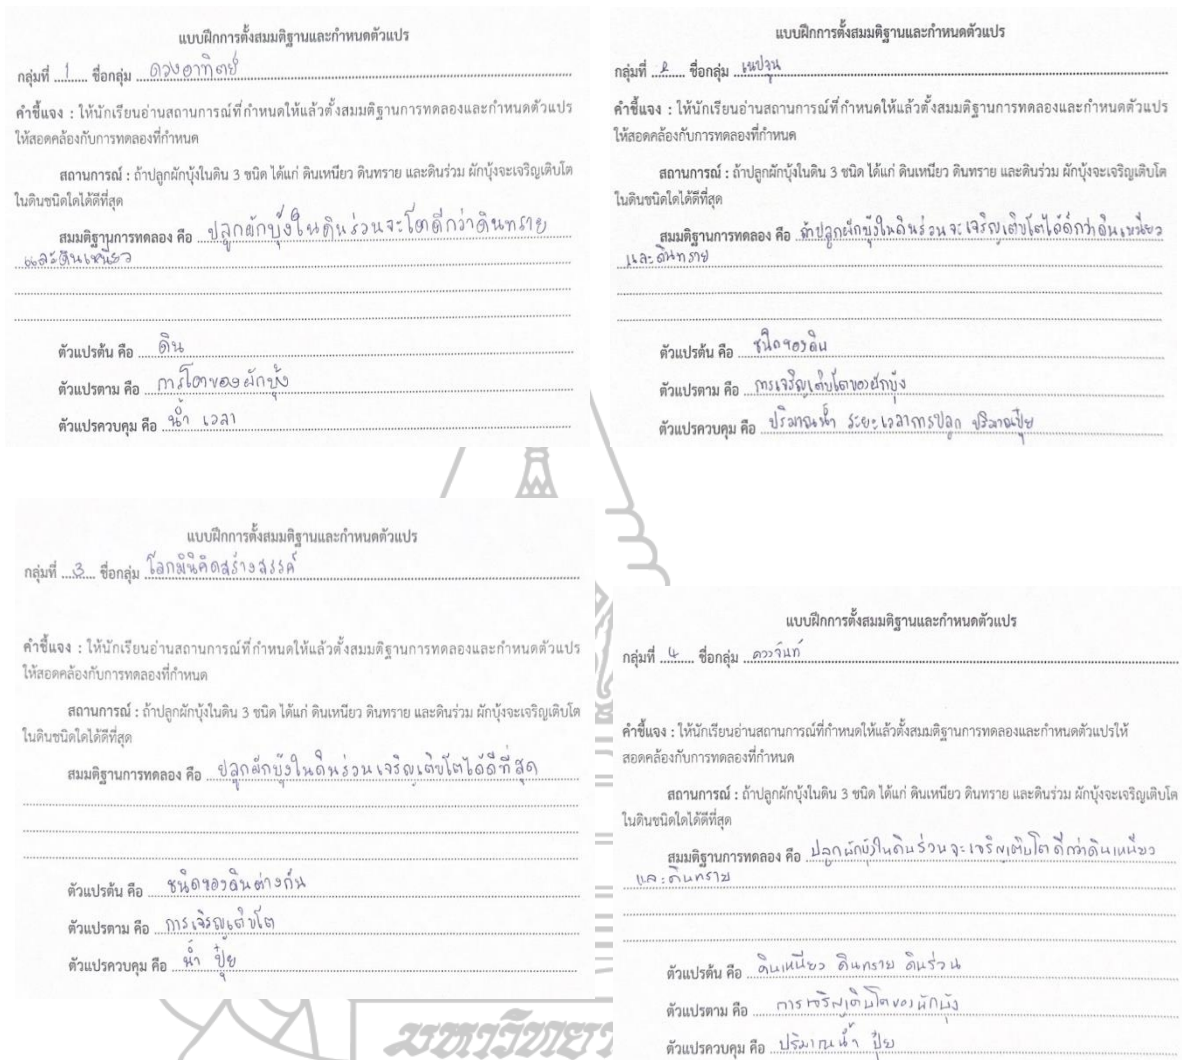 แบบฝึกการตั้งสมมติฐานและกำหนดตัวแปร
กลุ่มที่ 1 ชื่อกลุ่ม ดวงอาทิตย์
คำชี้แจง : ให้นักเรียนอ่านสถานการณ์ที่กำหนดให้แล้วตั้งสมมติฐานการทดลองและกำหนดตัวแปร
ให้สอดคล้องกับการทดลองที่กำหนด
สถานการณ์ : ถ้าปลูกผักบุ้งในดิน 3 ชนิด ได้แก่ ดินเหนียว ดินทราย และดินร่วม ผักบุ้งจะเจริญเติบโต
ในดินชนิดใดได้ดีที่สุด
สมมติฐานการทดลอง คือ ปลูกผักบุ้งในดินร่วนจะโตดีกว่าดินทราย
และดินเหนียว
ตัวแปรต้น คือ ดิน
ตัวแปรตาม คือ การโตของผักบุ้ง
ตัวแปรควบคุม คือ น้ำ เวลา
แบบฝึกการตั้งสมมติฐานและกำหนดตัวแปร
กลุ่มที่ 2 ชื่อกลุ่ม เนปจูน
คำชี้แจง : ให้นักเรียนอ่านสถานการณ์ที่กำหนดให้แล้วตั้งสมมติฐานการทดลองและกำหนดตัวแปร
ให้สอดคล้องกับการทดลองที่กำหนด
สถานการณ์ : ถ้าปลูกผักบุ้งในดิน 3 ชนิด ได้แก่ ดินเหนียว ดินทราย และดินร่วม ผักบุ้งจะเจริญเติบโต
ในดินชนิดใดได้ดีที่สุด
สมมติฐานการทดลอง คือ ถ้าปลูกผักบุ้งในดินร่วนจะเจริญเติบโตได้ดีกว่าดินเหนียว
และดินทราย
ตัวแปรต้น คือ ชนิดของดิน
ตัวแปรตาม คือ การเจริญเติบโตของผักบุ้ง
ตัวแปรควบคุม คือ ปริมาณน้ำ ระยะเวลาการปลูก ปริมาณปุ๋ย
แบบฝึกการตั้งสมมติฐานและกำหนดตัวแปร
กลุ่มที่ 3 ชื่อกลุ่ม โลกมินิคิดสร้างสรรค์
คำชี้แจง : ให้นักเรียนอ่านสถานการณ์ที่กำหนดให้แล้วตั้งสมมติฐานการทดลองและกำหนดตัวแปร
ให้สอดคล้องกับการทดลองที่กำหนด
สถานการณ์ : ถ้าปลูกผักบุ้งในดิน 3 ชนิด ได้แก่ ดินเหนียว ดินทราย และดินร่วม ผักบุ้งจะเจริญเติบโต
ในดินชนิดใดได้ดีที่สุด
สมมติฐานการทดลอง คือ ปลูกผักบุ้งในดินร่วนเจริญเติบโตได้ดีที่สุด
ตัวแปรต้น คือ ชนิดของดินต่างกัน
ตัวแปรตาม คือ การเจริญเติบโต
ตัวแปรควบคุม คือ น้ำ ปุ๋ย
แบบฝึกการตั้งสมมติฐานและกำหนดตัวแปร
กลุ่มที่ 4 ชื่อกลุ่ม ดวงจันท์
คำชี้แจง : ให้นักเรียนอ่านสถานการณ์ที่กำหนดให้แล้วตั้งสมมติฐานการทดลองและกำหนดตัวแปรให้
สอดคล้องกับการทดลองที่กำหนด
สถานการณ์ : ถ้าปลูกผักบุ้งในดิน 3 ชนิด ได้แก่ ดินเหนียว ดินทราย และดินร่วม ผักบุ้งจะเจริญเติบโต
ในดินชนิดใดได้ดีที่สุด
สมมติฐานการทดลอง คือ ปลูกผักบุ้งในดินร่วนจะเจริญเติบโตดีกว่าดินเหนียว
และดินทราย
ตัวแปรต้น คือ ดินเหนียว ดินทราย ดินร่วน
ตัวแปรตาม คือ การเจริญเติบโตของผักบุ้ง
ตัวแปรควบคุม คือ ปริมาณน้ำ ปุ๋ย